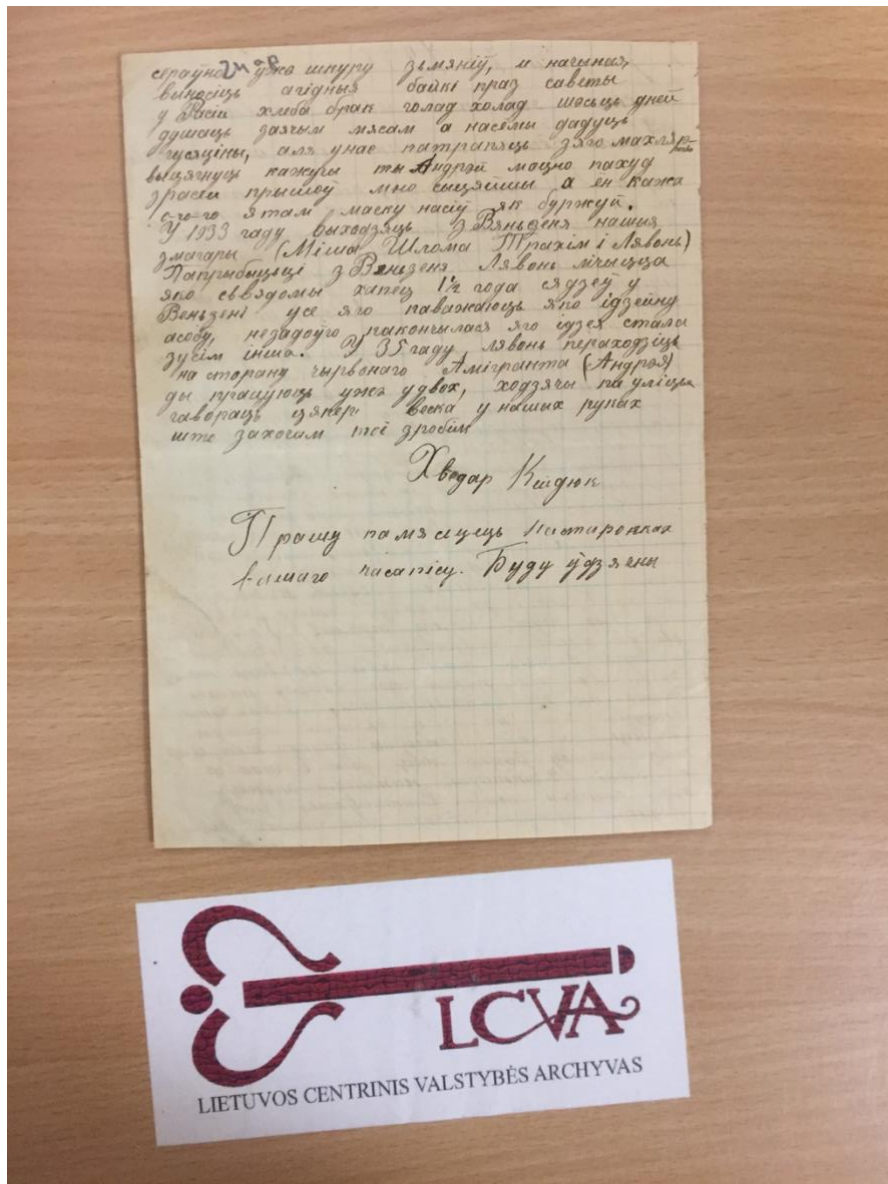 ужо шкуру зьмяніў, и начыная,
выносіць агідныя байкі праз саветы
у Расіі хлеба брак голад холад шэсьць дней
душаць заячым мясам а насёмы дадуць
гусяціны, аля унас патрапяць зяго махляр
выцягнуць кажучы ты Андрэй моцно пахуд
зрасеи прышоў мно сыцейшы а ен кажа
о-го-го я там маску насіў як буржуй.
У 1933 гаду выходзяць з Вяньзеня нашыя
змагары (Міша Шлома Трахім і Лявонь)
Папрыбыцьці з Веньзеня Лявонь лічыцца
яко сьвядомы хапец 1½ года сядзеў у
Веньзені усе яго паважаюць яко ідзейну
асобу, незадоўго пакончылася яго ідзея стала
зусім інша. У 35 гаду лявонь пераходзіць
на сторану чырвонаго Амігранта (Андрэя)
ды працуюць ужэ удвох, ходзячы па уліцы
гавораць цяпер веска у нашых руках
што захочам тое зробім
Хведар
Прашу памясціць Настаронках
Вашаго часапісу. Буду ўдзячны
LCVA
LIETUVOS CENTRINIS VALSTYBĖS ARCHYVAS